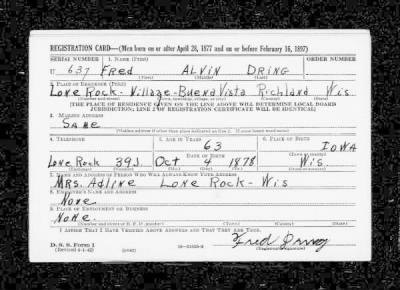 REGISTRATION CARD—(Men born on or after April 28, 1877 and on or before February 16, 1897)
SERIAL NUMBER 1. NAME (Print) ORDER NUMBER
U 637 Fred ALVIN DRING
(First) (Middle) (Last)
2. PLACE OF RESIDENCE (Print)
Lone Rock - Village - Buena Vista Richland Wis
(Number and street) (Town, township, village, or city) (County) (State)
[THE PLACE OF RESIDENCE GIVEN ON THE LINE ABOVE WILL DETERMINE LOCAL BOARD
JURISDICTION; LINE 2 OF REGISTRATION CERTIFICATE WILL BE IDENTICAL]
3. MAILING ADDRESS
Same
(Mailing address if other than place indicated on line 2. If same insert word same)
4. TELEPHONE 5. AGE IN YEARS 6. PLACE OF BIRTH
63 IOWA
DATE OF BIRTH
Lone Rock 39J Oct 4 1878 Wis.
(Exchange) (Number) (Mo.) (Day) (Yr.) (State or country)
7. NAME AND ADDRESS OF PERSON WHO WILL ALWAYS KNOW YOUR ADDRESS
MRS. Adline Lone Rock - Wis
8. EMPLOYER'S NAME AND ADDRESS
None
9. PLACE OF EMPLOYMENT OR BUSINESS
None
(Number and street or R. F. D. number) (Town) (County) (State)
I AFFIRM THAT I HAVE VERIFIED ABOVE ANSWERS AND THAT THEY ARE TRUE.
D. S. S. Form 1
(Revised 4-1-42) (over) Fred Dring
(Registrant's signature)